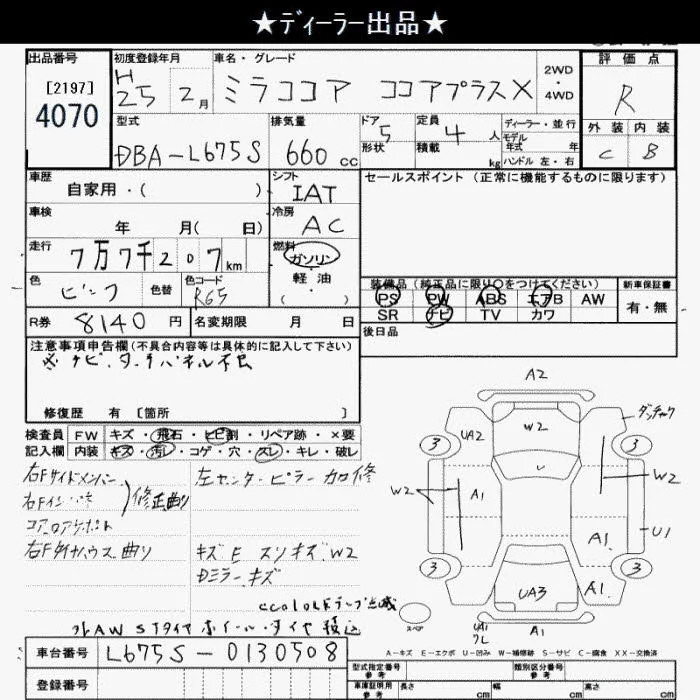 ★ディーラー出品★
出品番号
[2197]
4070
初度登録年月
H25 2月
車名・グレード
ミラココア ココアプラスX
2WD
・
4WD
評価点
R
外装 内装
C B
型式
DBA-L675S
排気量
660 cc
ドア 5
形状
定員 4 人
積載 kg
ディーラー・並行
モデル
年式 年
ハンドル 左・右
車歴
自家用・( )
シフト
IAT
車検
年 月( 日)
冷房
AC
走行
7万7千207km
燃料
ガソリン
・
軽油
( )
色
ピンク
色替
色コード
R65
R券 8140 円
名変期限 月 日
セールスポイント(正常に機能するものに限ります)
装備品(純正品に限り〇をつけてください)
PS PW ABS エアB AW
SR ナビ TV カワ
新車保証書
有・無
後日品
注意事項申告欄(不具合内容等は具体的に記入して下さい)
※ナビ・タッチパネル不良
修復歴 有 [箇所 ]
検査員 FW キズ・飛石・ヒビ割・リペア跡・×要
記入欄 内装 キズ・汚レ・コゲ・穴・スレ・キレ・破レ
右Fサイドメンバー
右Fインパネ
修正曲り
コアロアサポート
右Fタイヤハウス曲り
左センターピラー カロ修
キズ E スリキズ W2
Dミラーキズ
ecoIDLEランプ点滅
社外AW Sタイヤ ホイール・タイヤ積込
A2
W2
UA2
3
3
3
3
W2
A1
W2
ダッチャク
U1
A1
A1
UA3
A1
スペア
A-キズ E-エクボ U-凹み W-補修跡 S-サビ C-腐食 XX-交換済
車台番号 L675S-0130508
登録番号
型式指定番号
参考
類別区分番号
参考
車庫証明用
参考
長さ cm 幅 cm 高さ cm